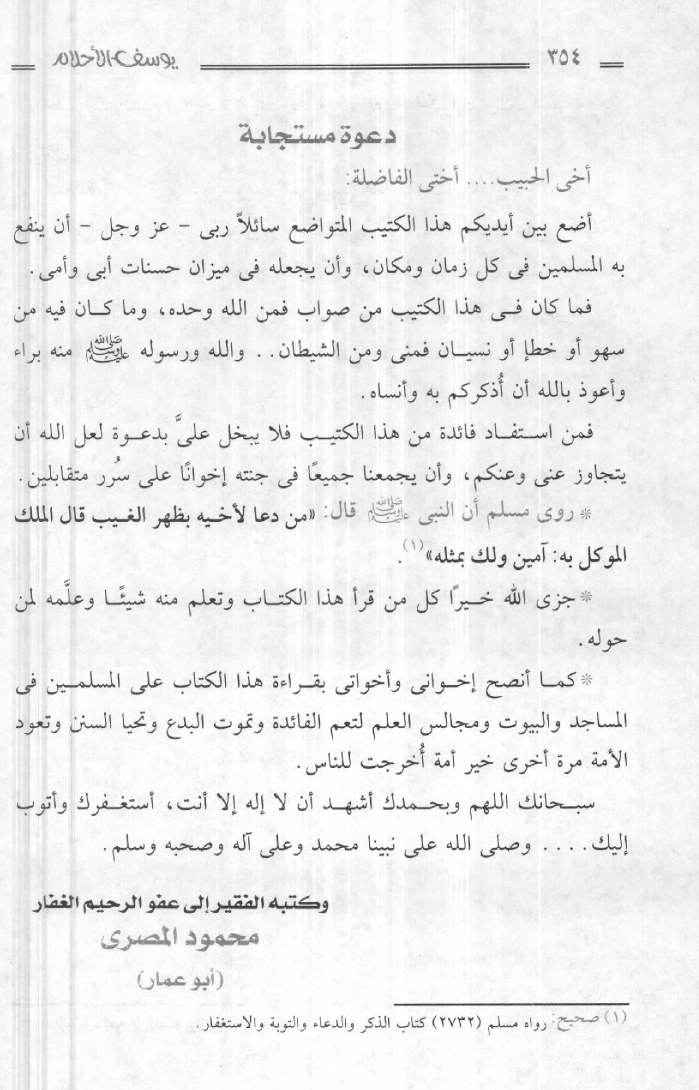 ٣٥٤ يوسف الأحلام
دعوة مستجابة
أخى الحبيب.... أختى الفاضلة:
أضع بين أيديكم هذا الكتيب المتواضع سائلاً ربى - عز وجل - أن ينفع
به المسلمين فى كل زمان ومكان، وأن يجعله فى ميزان حسنات أبى وأمى.
فما كان فى هذا الكتيب من صواب فمن الله وحده، وما كان فيه من
سهو أو خطإ أو نسيان فمنى ومن الشيطان.. والله ورسوله ﷺ منه براء
وأعوذ بالله أن أُذكركم به وأنساه.
فمن استفاد فائدة من هذا الكتيب فلا يبخل علىَّ بدعوة لعل الله أن
يتجاوز عنى وعنكم، وأن يجمعنا جميعًا فى جنته إخوانًا على سُرر متقابلين.
* روى مسلم أن النبى ﷺ قال: «من دعا لأخيه بظهر الغيب قال الملك
الموكل به: آمين ولك بمثله»(١).
* جزى الله خيرًا كل من قرأ هذا الكتاب وتعلم منه شيئًا وعلَّمه لمن
حوله.
* كما أنصح إخوانى وأخواتى بقراءة هذا الكتاب على المسلمين فى
المساجد والبيوت ومجالس العلم لتعم الفائدة وتموت البدع وتحيا السنن وتعود
الأمة مرة أخرى خير أمة أُخرجت للناس.
سبحانك اللهم وبحمدك أشهد أن لا إله إلا أنت، أستغفرك وأتوب
إليك.... وصلى الله على نبينا محمد وعلى آله وصحبه وسلم.
وكتبه الفقير إلى عفو الرحيم الغفار
محمود المصرى
(أبو عمار)
(١) صحيح: رواه مسلم (٢٧٣٢) كتاب الذكر والدعاء والتوبة والاستغفار.